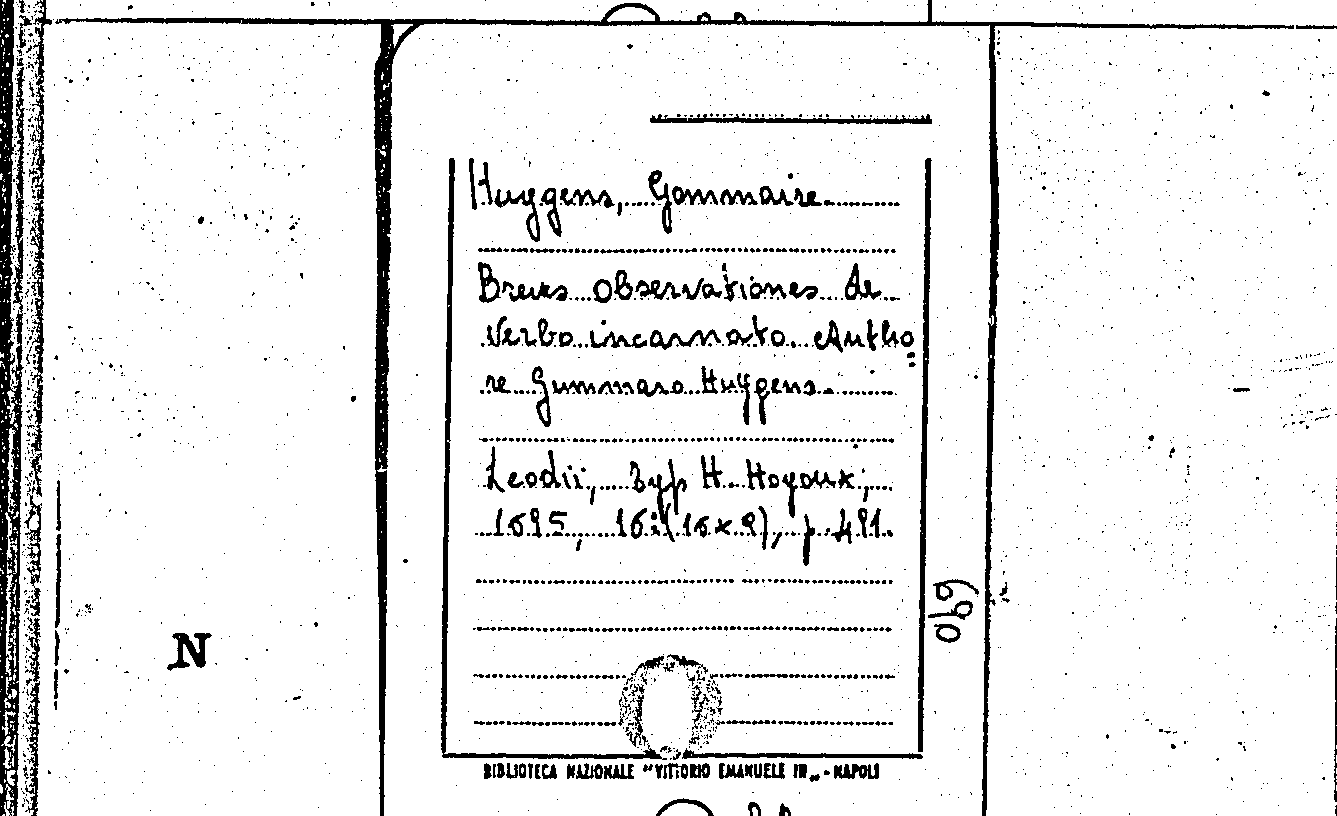 Huygens, Gommaire.
Breves observationes de
Verbo incarnato. Autho=
re Gummaro Huygens.
Leodii, Typ H. Hoyoux,
1695, 16:(16x9), p. 491.
690
N
BIBLIOTECA NAZIONALE "VITTORIO EMANUELE III„ - NAPOLI